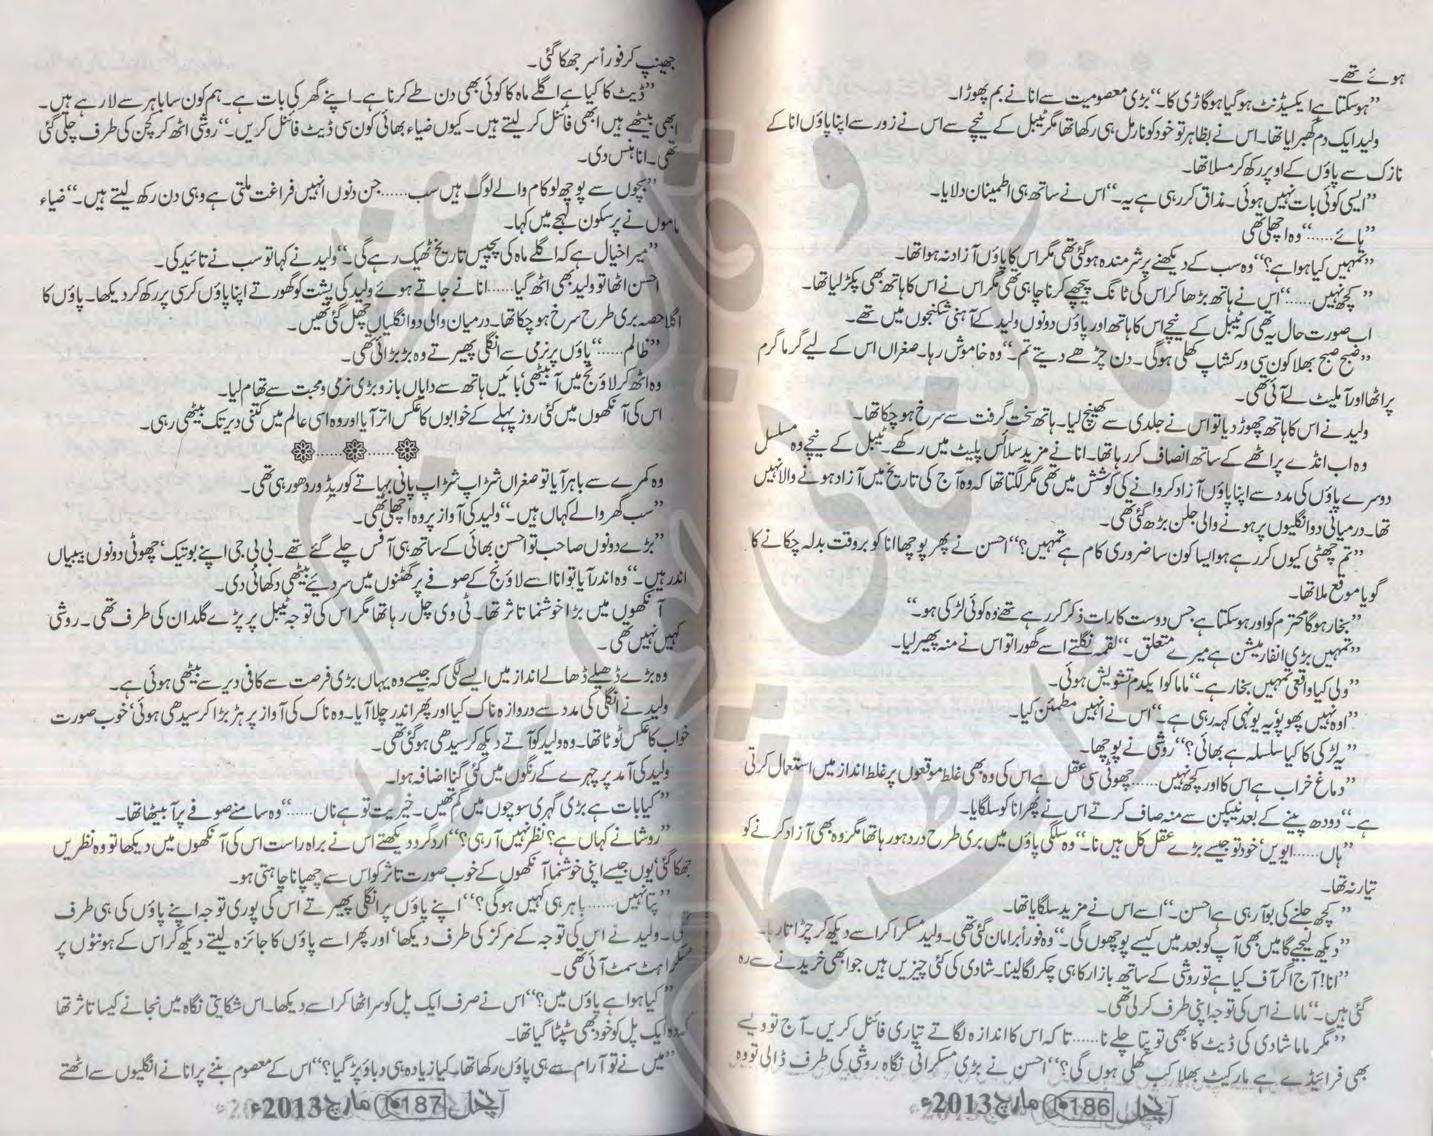 ہوئے تھے۔
”ہوسکتا ہے ایکسیڈنٹ ہوگیا ہو گاڑی کا۔“ بڑی معصومیت سے انا نے بم پھوڑا۔
ولید ایک دم گھبرایا تھا۔ اس نے بظاہر تو خود کو نارمل ہی رکھا تھا مگر ٹیبل کے نیچے سے اس نے زور سے اپنا پاؤں انا کے
نازک سے پاؤں کے اوپر رکھ کر مسلا تھا۔
”ایسی کوئی بات نہیں ہوئی۔ مذاق کررہی ہے یہ۔“ اس نے ساتھ ہی اطمینان دلایا۔
”ہائے......“ وہ اچھلی تھی
”تمہیں کیا ہوا ہے؟“ وہ سب کے دیکھنے پر شرمندہ ہوگئی تھی مگر اس کا پاؤں آزاد نہ ہوا تھا۔
”کچھ نہیں......“ اس نے ہاتھ بڑھا کر اس کی ٹانگ پیچھے کرنا چاہی تھی مگر اس نے اس کا ہاتھ بھی پکڑ لیا تھا۔
اب صورت حال یہ تھی کہ ٹیبل کے نیچے اس کا ہاتھ اور پاؤں دونوں ولید کے آہنی شکنجوں میں تھے۔
”صبح صبح بھلا کون سی ورکشاپ کھلی ہوگی۔ دن چڑھے دیتے تم۔“ وہ خاموش رہا۔ صغراں اس کے لیے گرما گرم
پراٹھا اور آملیٹ لے آئی تھی۔
ولید نے اس کا ہاتھ چھوڑ دیا تو اس نے جلدی سے کھینچ لیا۔ ہاتھ سخت گرفت سے سرخ ہوچکا تھا۔
وہ اب انڈے پراٹھے کے ساتھ انصاف کررہا تھا۔ انا نے مزید سلائس پلیٹ میں رکھے۔ ٹیبل کے نیچے وہ مسلسل
دوسرے پاؤں کی مدد سے اپنا پاؤں آزاد کروانے کی کوشش میں تھی مگر لگتا تھا کہ وہ آج کی تاریخ میں آزاد ہونے والا نہیں
تھا۔ درمیانی دو انگلیوں پر ہونے والی جلن بڑھ گئی تھی۔
”تم چھٹی کیوں کررہے ہو ایسا کون سا ضروری کام ہے تمہیں؟“ احسن نے پھر پوچھا انا کو بروقت بدلہ چکانے کا
گویا موقع ملا تھا۔
”بخار ہوگا محترم کو اور ہوسکتا ہے جس دوست کا رات ذکر کررہے تھے وہ کوئی لڑکی ہو۔“
”تمہیں بڑی انفارمیشن ہے میرے متعلق۔“ لقمہ نگلتے اسے گھورا تو اس نے منہ پھیر لیا۔
”ولی کیا واقعی تمہیں بخار ہے۔“ ماما کو ایکدم تشویش ہوئی۔
”اوہ نہیں پھوپو! یہ یونہی کہہ رہی ہے۔“ اس نے انہیں مطمئن کیا۔
”یہ لڑکی کا کیا سلسلہ ہے بھائی؟“ روشی نے پوچھا۔
”دماغ خراب ہے اس کا اور کچھ نہیں...... چھوٹی سی عقل ہے اس کی وہ بھی غلط موقعوں پر غلط انداز میں استعمال کرتی
ہے۔“ دودھ پینے کے بعد نیپکن سے منہ صاف کرتے اس نے پھر انا کو سلگایا۔
”ہاں...... ایویں‘ خود تو جیسے بڑے عقل کل ہیں نا۔“ وہ سلگی پاؤں میں بری طرح درد ہورہا تھا مگر وہ بھی آزاد کرنے کو
تیار نہ تھا۔
”کچھ جلنے کی بو آرہی ہے احسن۔“ اسے اس نے مزید سلگایا تھا۔
”دیکھ لیجیے گا میں بھی آپ کو بعد میں کیسے پوچھوں گی۔“ وہ فوراً برا مان گئی تھی۔ ولید مسکرا کر اسے دیکھ کر چڑاتا رہا۔
”انا! آج اگر آف کیا ہے تو روشی کے ساتھ بازار کا ہی چکر لگالینا۔ شادی کی کئی چیزیں ہیں جو ابھی خریدنے سے رہ
گئی ہیں۔“ ماما نے اس کی توجہ اپنی طرف کرلی تھی۔
”مگر ماما شادی کی ڈیٹ کا بھی تو پتا چلے نا...... تاکہ اس کا اندازہ لگاتے تیاری فائنل کریں۔ آج تو ویسے
بھی فرائیڈے ہے مارکیٹ بھلا کب کھلی ہوں گی؟“ احسن نے بڑی مسکراتی نگاہ روشی کی طرف ڈالی تو وہ
آنچل 186 مارچ 2013ء
جھینپ کر فوراً سر جھکا گئی۔
”ڈیٹ کا کیا ہے اگلے ماہ کا کوئی بھی دن طے کرنا ہے۔ اپنے گھر کی بات ہے۔ ہم کون سا باہر سے لارہے ہیں۔
ابھی بیٹھے ہیں ابھی فائنل کرلیتے ہیں۔ کیوں ضیاء بھائی کون سی ڈیٹ فائنل کریں۔“ روشی اٹھ کر کچن کی طرف چلی گئی
تھی۔ انا ہنس دی۔
”بچوں سے پوچھ لو کام والے لوگ ہیں سب...... جن دنوں انہیں فراغت ملتی ہے وہی دن رکھ لیتے ہیں۔“ ضیاء
ماموں نے پرسکون لہجے میں کہا۔
”میرا خیال ہے کہ اگلے ماہ کی پچیس تاریخ ٹھیک رہے گی۔“ ولید نے کہا تو سب نے تائید کی۔
احسن اٹھا تو ولید بھی اٹھ گیا...... انا نے جاتے ہوئے ولید کی پشت کو گھورتے اپنا پاؤں کرسی پر رکھ کر دیکھا۔ پاؤں کا
اگلا حصہ بری طرح سرخ ہوچکا تھا۔ درمیان والی دو انگلیاں چھل گئی تھیں۔
”ظالم......“ پاؤں پر نرمی سے انگلی پھیرتے وہ بڑبڑائی تھی۔
وہ اٹھ کر لاؤنج میں آبیٹھی‘ بائیں ہاتھ سے دایاں بازو بڑی نرمی ومحبت سے تھام لیا۔
اس کی آنکھوں میں کئی روز پہلے کے خوابوں کا عکس اتر آیا اور وہ اسی عالم میں کتنی دیر تک بیٹھی رہی۔
❁......❁......❁
وہ کمرے سے باہر آیا تو صغراں شڑاپ شڑاپ پانی بہاتے کوریڈور دھورہی تھی۔
”سب گھر والے کہاں ہیں۔“ ولید کی آواز پر وہ اچھلی تھی۔
”بڑے دونوں صاحب تو احسن بھائی کے ساتھ ہی آفس چلے گئے تھے۔ بی بی جی اپنے بوتیک‘ چھوٹی دونوں بیبیاں
اندر ہیں۔“ وہ اندر آیا تو انا اسے لاؤنج کے صوفے پر گھٹنوں میں سر دیے بیٹھی دکھائی دی۔
آنکھوں میں بڑا خوشنما تاثر تھا۔ ٹی وی چل رہا تھا مگر اس کی توجہ ٹیبل پر پڑے گلدان کی طرف تھی۔ روشی
کہیں نہیں تھی۔
وہ بڑے ڈھیلے ڈھالے انداز میں ایسے لگی کہ جیسے وہ یہاں بڑی فرصت سے کافی دیر سے بیٹھی ہوئی ہے۔
ولید نے انگلی کی مدد سے دروازہ ناک کیا اور پھر اندر چلا آیا۔ وہ ناک کی آواز پر ہڑبڑا کر سیدھی ہوئی‘ خوب صورت
خواب کا عکس ٹوٹا تھا۔ وہ ولید کو آتے دیکھ کر سیدھی ہوگئی تھی۔
ولید کی آمد پر چہرے کے رنگوں میں کئی گنا اضافہ ہوا۔
”کیا بات ہے بڑی گہری سوچوں میں گم تھیں۔ خیریت تو ہے ناں......“ وہ سامنے صوفے پر آبیٹھا تھا۔
”روشانے کہاں ہے؟ نظر نہیں آرہی؟“ اردگرد دیکھتے اس نے براہ راست اس کی آنکھوں میں دیکھا تو وہ نظریں
جھکا گئی‘ یوں جیسے اپنی خوشنما آنکھوں کے خوب صورت تاثر کو اس سے چھپانا چاہتی ہو۔
”پتا نہیں...... باہر ہی کہیں ہوگی؟“ اپنے پاؤں پر انگلی پھیرتے اس کی پوری توجہ اپنے پاؤں کی ہی طرف
تھی۔ ولید نے اس کی توجہ کے مرکز کی طرف دیکھا‘ اور پھر اسے پاؤں کا جائزہ لیتے دیکھ کر اس کے ہونٹوں پر
مسکراہٹ سمٹ آئی تھی۔
”کیا ہوا ہے پاؤں میں؟“ اس نے صرف ایک پل کو سر اٹھا کر اسے دیکھا۔ اس شکایتی نگاہ میں نجانے کیسا تاثر تھا
کہ وہ ایک پل کو خود بھی سٹپٹا گیا تھا۔
”میں نے تو آرام سے ہی پاؤں رکھا تھا۔ کیا زیادہ ہی دباؤ پڑ گیا؟“ اس کے معصوم بننے پر انا نے انگلیوں سے اٹھتے
آنچل 187 مارچ 2013ء